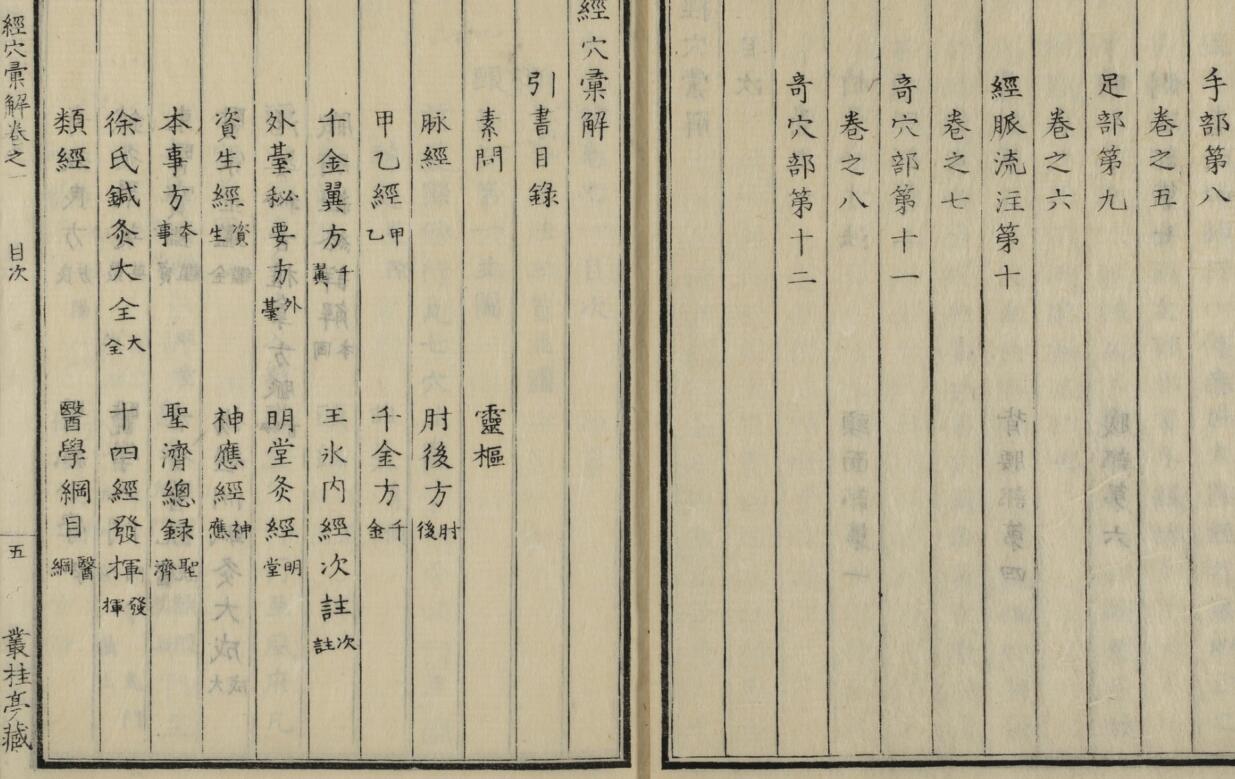 手部第八
卷之五
足部第九
卷之六
經脈流注第十
卷之七
竒穴部第十一
卷之八
竒穴部第十二
經穴彙解
引書目錄
素問 靈樞
脉經 肘後方 肘後
甲乙經 甲乙 千金方 千金
千金翼方 千翼 王氷内經次註 次註
外臺秘要方 外臺 明堂灸經 明堂
資生經 資生 神應經 神應
本事方 本事 聖濟總録 聖濟
徐氏鍼灸大全 大全 十四經發揮 發揮
類經 醫學綱目 醫綱
經穴彙解卷之一 目次 五 叢桂亭藏